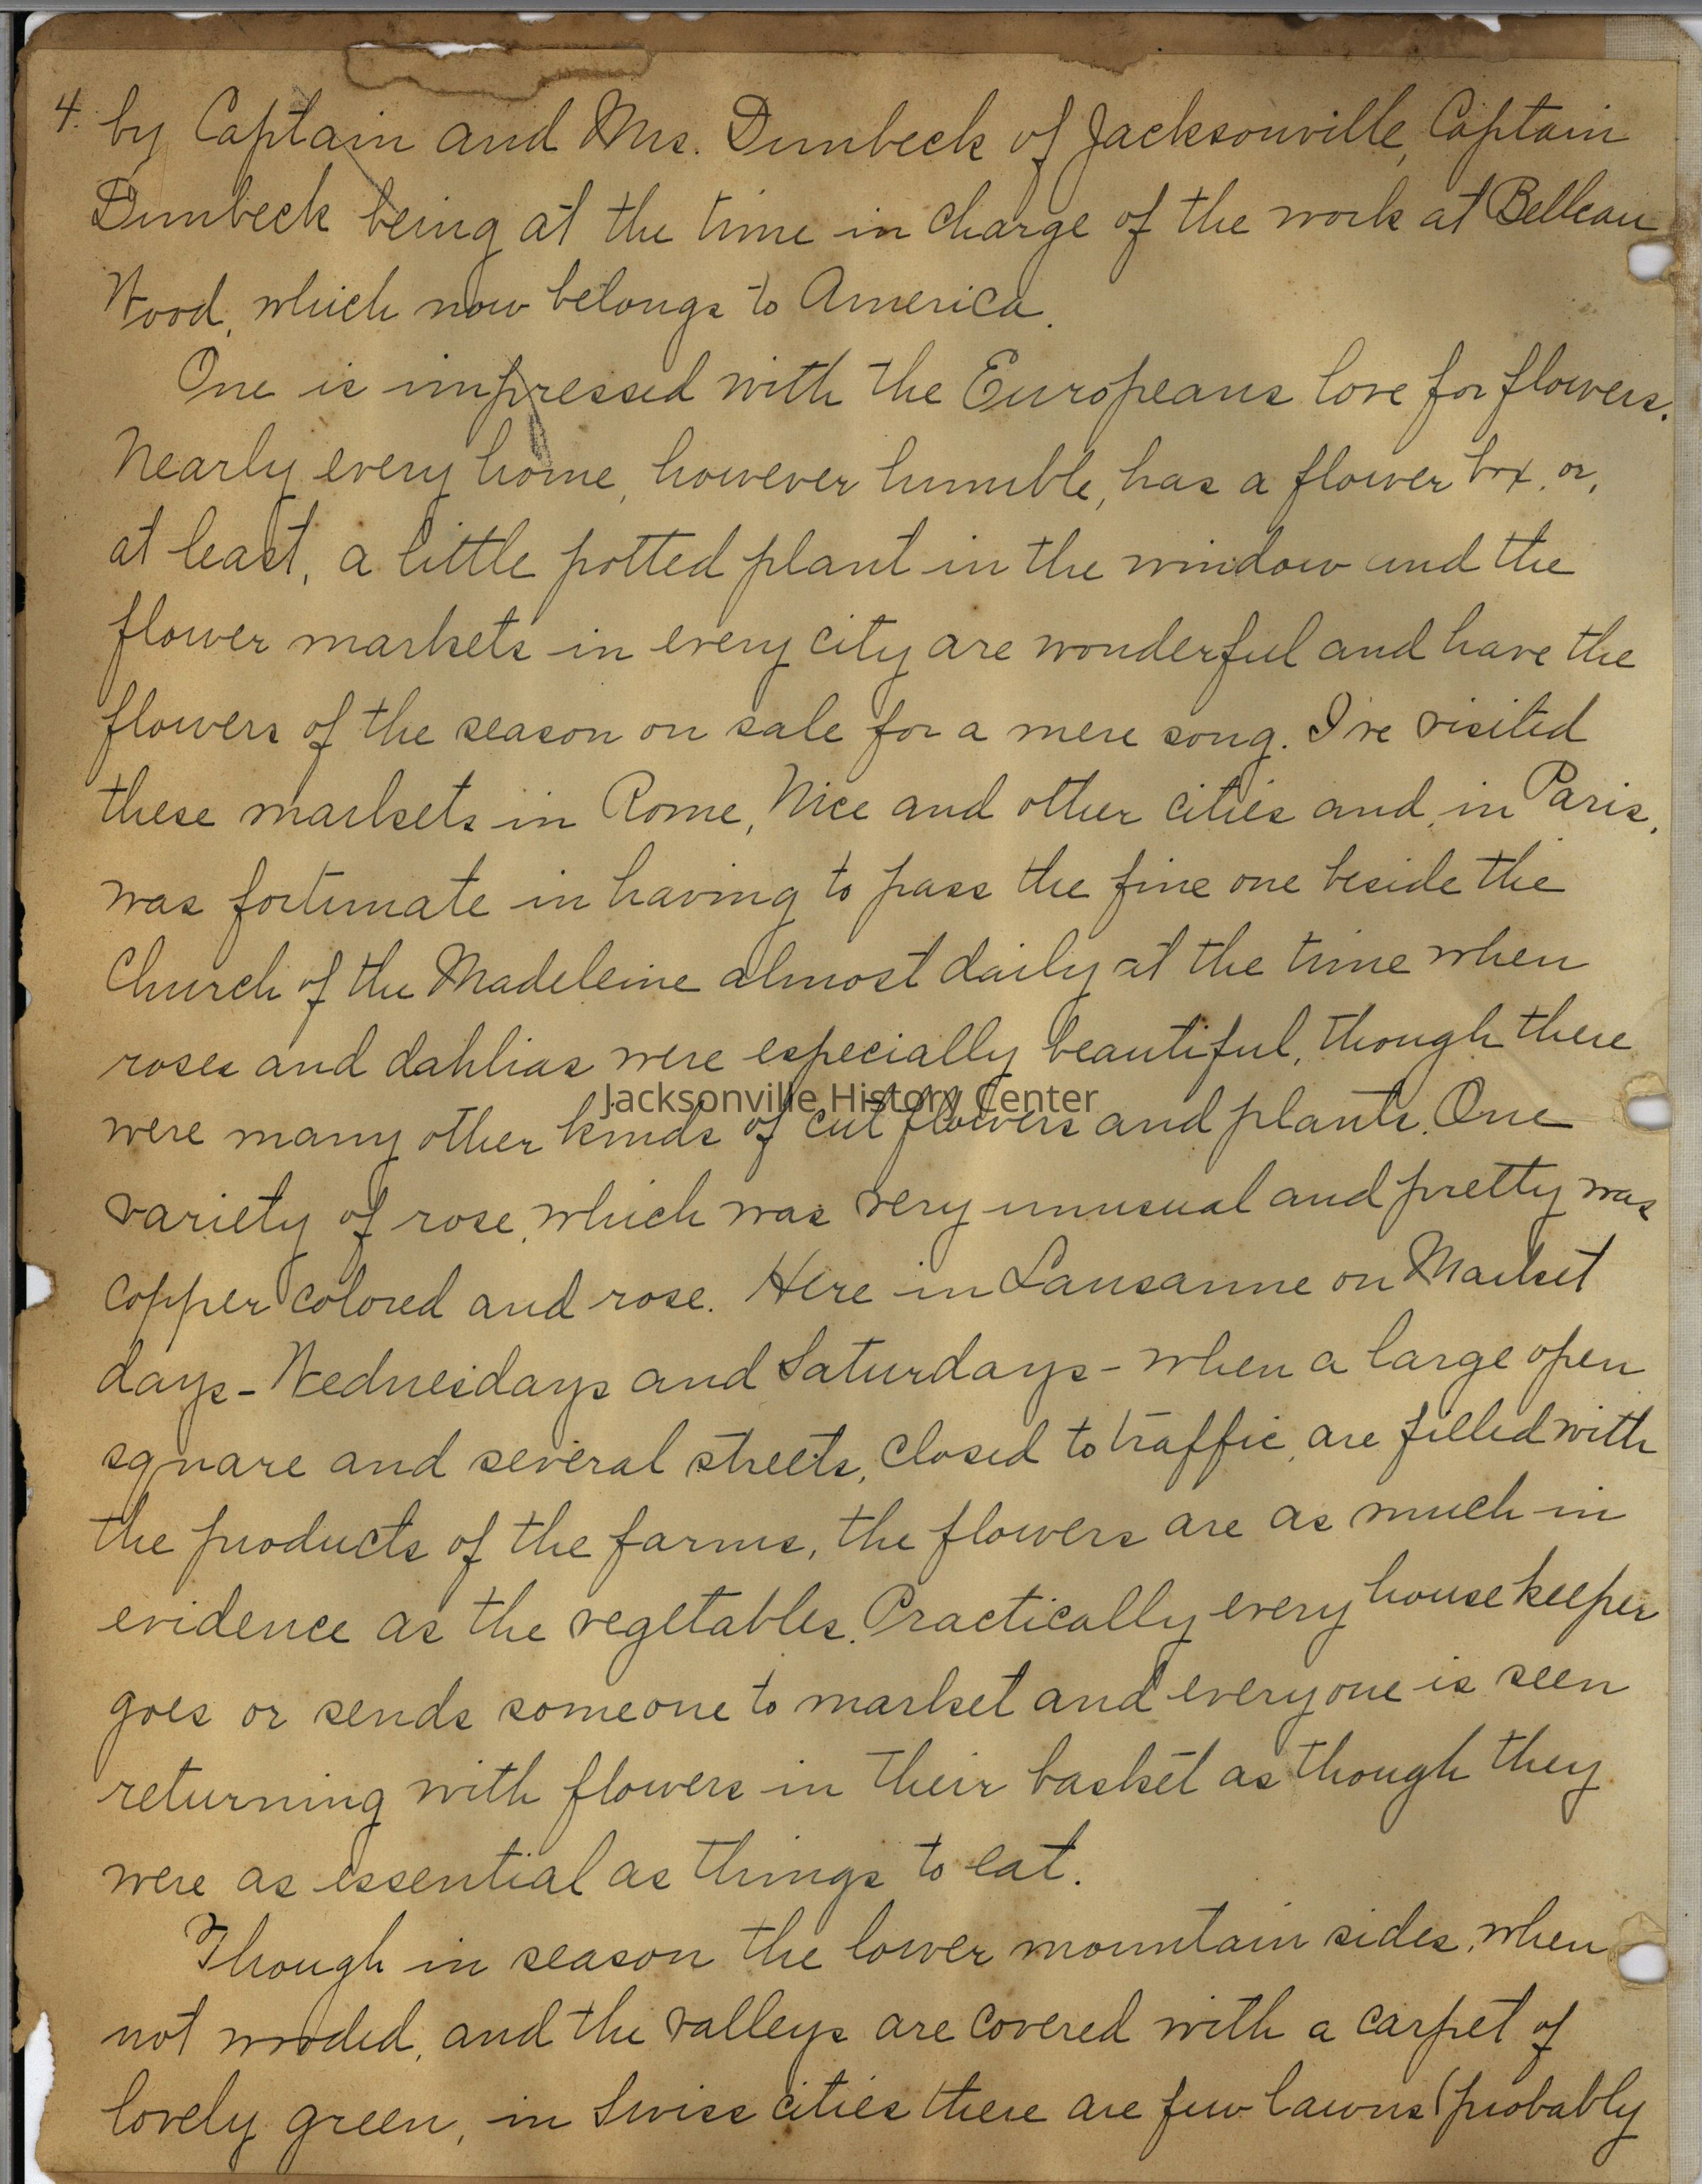 4. by Captain and Mrs. Dumbeck of Jacksonville, Captain
Dumbeck being at the time in charge of the work at Belleau
Wood, which now belongs to America.
One is impressed with the Europeans love for flowers.
Nearly every home, however humble, has a flower box, or,
at least, a little potted plant in the window and the
flower markets in every city are wonderful and have the
flowers of the season on sale for a mere song. I've visited
these markets in Rome, Nice and other cities and, in Paris,
was fortunate in having to pass the fine one beside the
Church of the Madeleine almost daily at the time when
roses and dahlias were especially beautiful, though there
Jacksonville History Center
were many other kinds of cut flowers and plants. One
variety of rose, which was very unusual and pretty was
copper colored and rose. Here in Lausanne on Market
days - Wednesdays and Saturdays - when a large open
square and several streets, closed to traffic, are filled with
the products of the farms, the flowers are as much in
evidence as the vegetables. Practically every housekeeper
goes or sends someone to market and everyone is seen
returning with flowers in their basket as though they
were as essential as things to eat.
Though in season the lower mountain sides, when
not wooded, and the valleys are covered with a carpet of
lovely green, in Swiss cities there are few lawns (probably